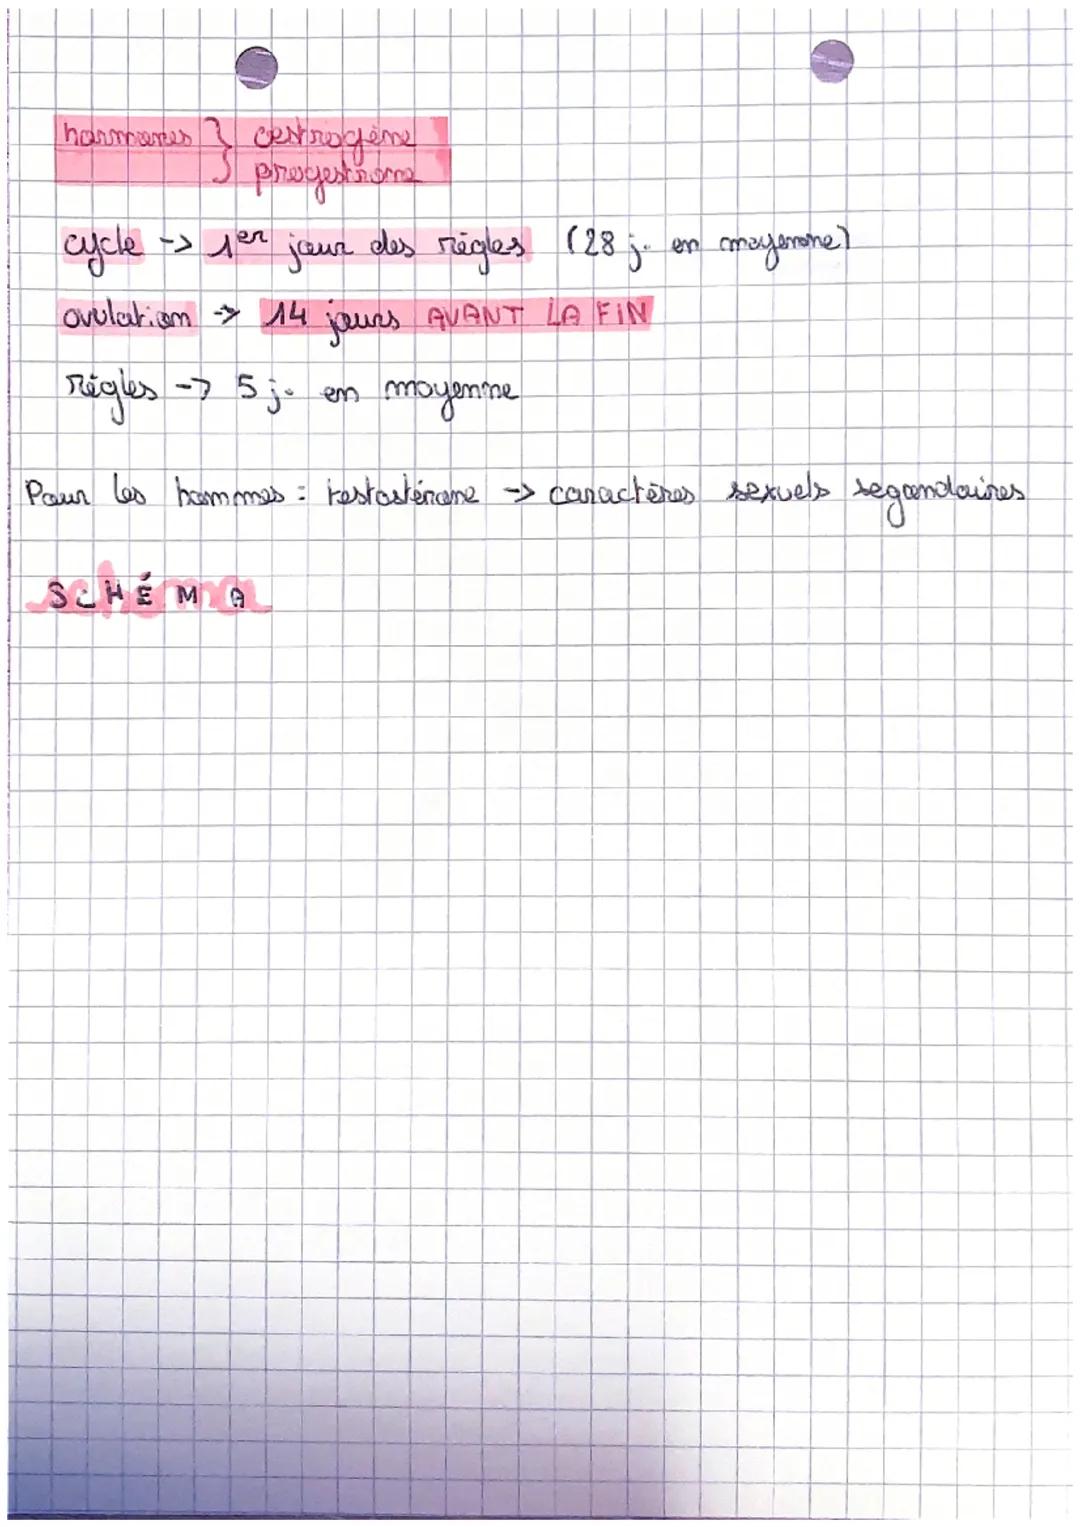 hormones } œstrogène
progestrone
cycle -> 1er jour des règles (28 j. en moyenne)
ovulation -> 14 jours AVANT LA FIN
règles -> 5 j. en moyenne
Pour les hommes : testostérone -> caractères sexuels segondaires
SCHÉMA